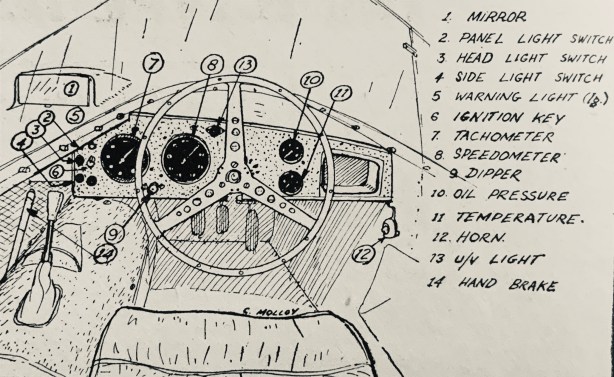 7
8
13
10
11
1
2
5
3
4
6
9
14
12
C. MOLLOY
1. MIRROR
2. PANEL LIGHT SWITCH
3 HEAD LIGHT SWITCH
4 SIDE LIGHT SWITCH
5 WARNING LIGHT (Ig.)
6 IGNITION KEY
7. TACHOMETER
8. SPEEDOMETER
9 DIPPER
10. OIL PRESSURE
11 TEMPERATURE.
12. HORN.
13 U/V LIGHT
14 HAND BRAKE